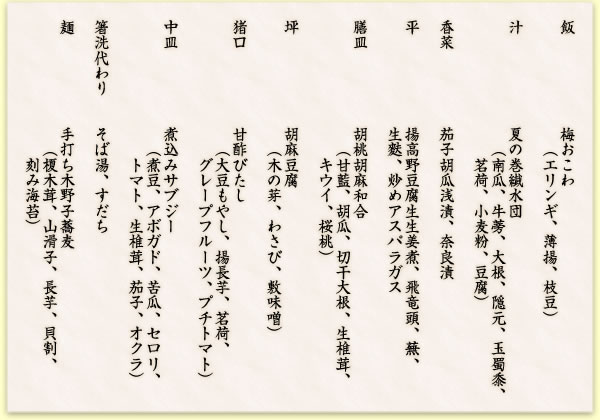 飯
梅おこわ
（エリンギ、薄揚、枝豆）
汁
夏の巻繊水団
（南瓜、牛蒡、大根、隠元、玉蜀黍、
茗荷、小麦粉、豆腐）
香菜
茄子胡瓜浅漬、奈良漬
平
揚高野豆腐生生姜煮、飛竜頭、蕪、
生麩、炒めアスパラガス
膳皿
胡桃胡麻和合
（甘藍、胡瓜、切干大根、生椎茸、
キウイ、桜桃）
坪
胡麻豆腐
（木の芽、わさび、敷味噌）
猪口
甘酢びたし
（大豆もやし、揚長芋、茗荷、
グレープフルーツ、プチトマト）
中皿
煮込みサブジー
（煮豆、アボガド、苦瓜、セロリ、
トマト、生椎茸、茄子、オクラ）
箸洗代わり
そば湯、すだち
麺
手打ち木野子蕎麦
（榎木茸、山滑子、長芋、貝割、
刻み海苔）